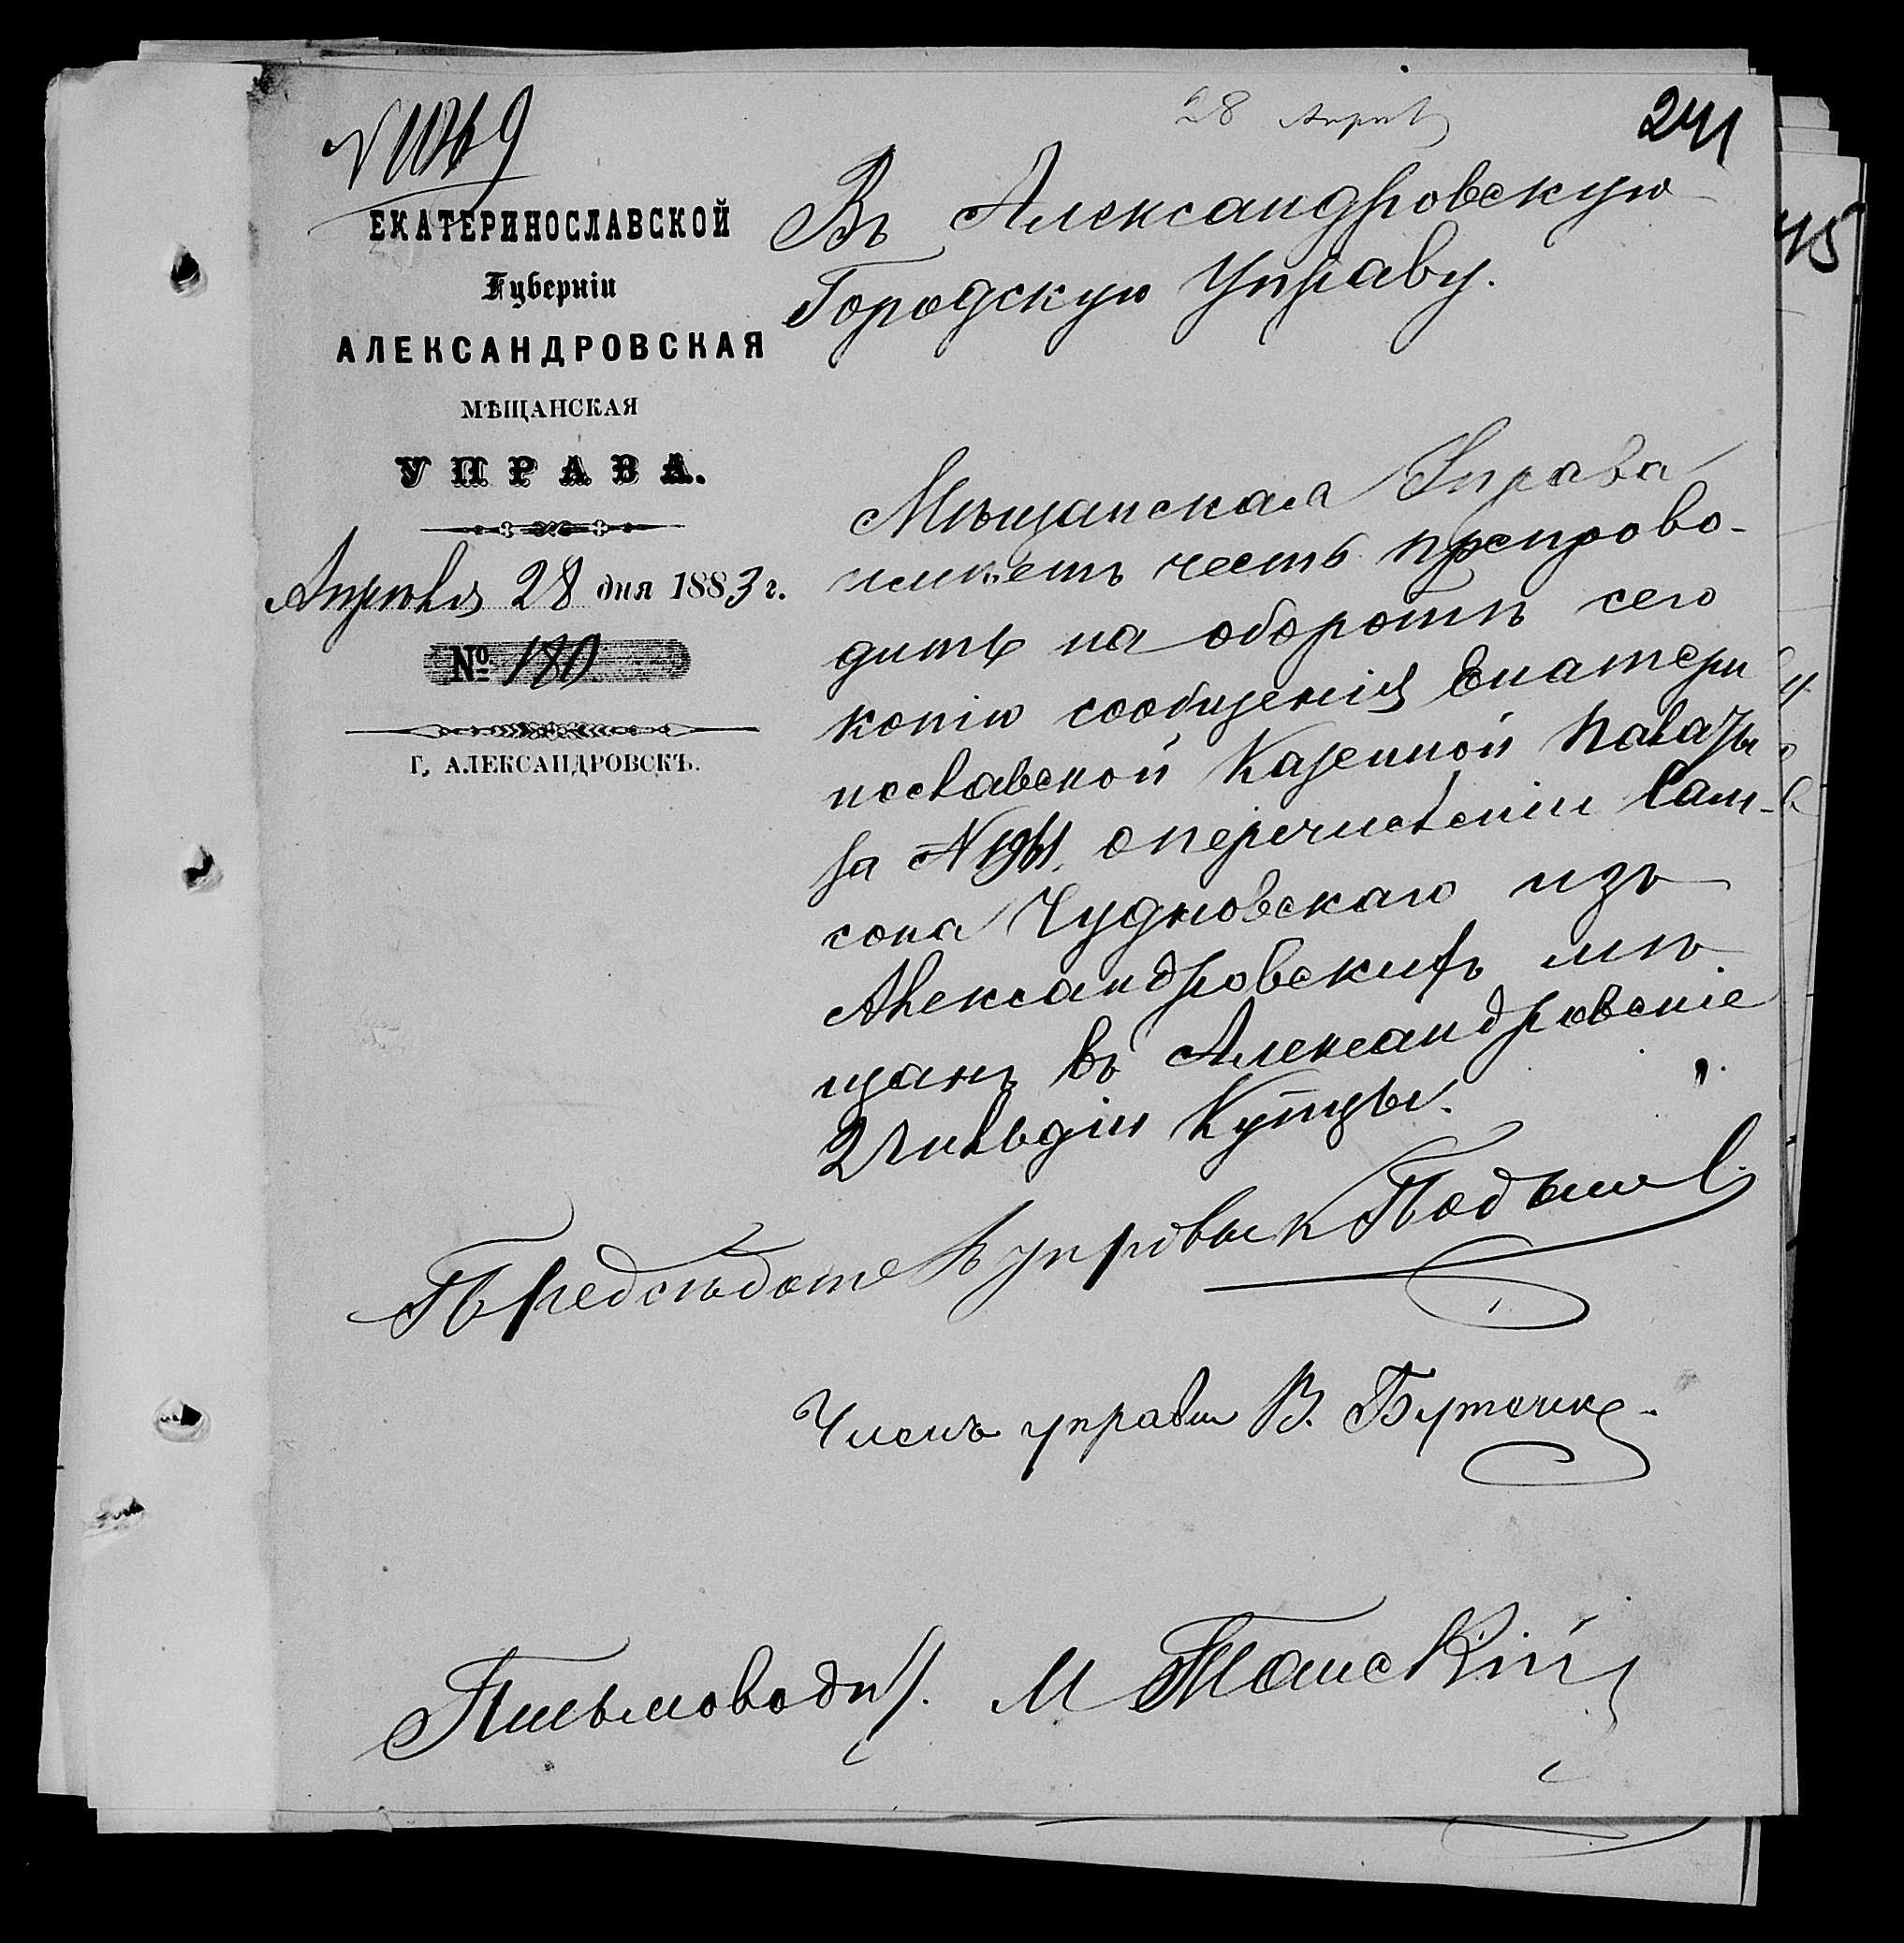 28 Апрѣля
241
ЕКАТЕРИНОСЛАВСКОЙ
Губерніи
АЛЕКСАНДРОВСКАЯ
МѢЩАНСКАЯ
УПРАВА.
Апрѣля 28 дня 1883 г.
№ 180
Г, АЛЕКСАНДРОВСКЪ.
Въ Александровскую
Городскую Управу.
Мѣщанская Управа
имѣетъ честь препрово-
дить на оборотѣ сего
копію сообщенія Екатери
нославской Казенной Палаты
за № о перечисленіи Сам-
сона Чудновскаго изъ
Александровскихъ мѣ
щанъ въ Александровскіе
2 Гильдіи Купцы.
Предсѣдатель управы
Членъ управы В. Бутенко
Письмовод. М
45